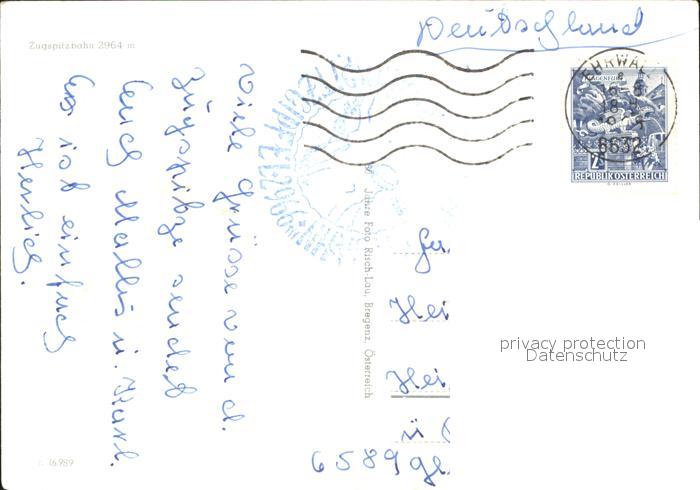 Zugspitzbahn 2964 m
Deutschland
EHRWA
6632
KLAGENFURT
REPUBLIK ÖSTERREICH
Viele Grüsse von d.
Zugspitze sendet
Euch Mathis u. Karl.
Es ist einfach
Herlich.
Jahre Foto Risch-Lau, Bregenz, Österreich
Hei
Hei
ü
6589 ge
privacy protection
Datenschutz
16.989